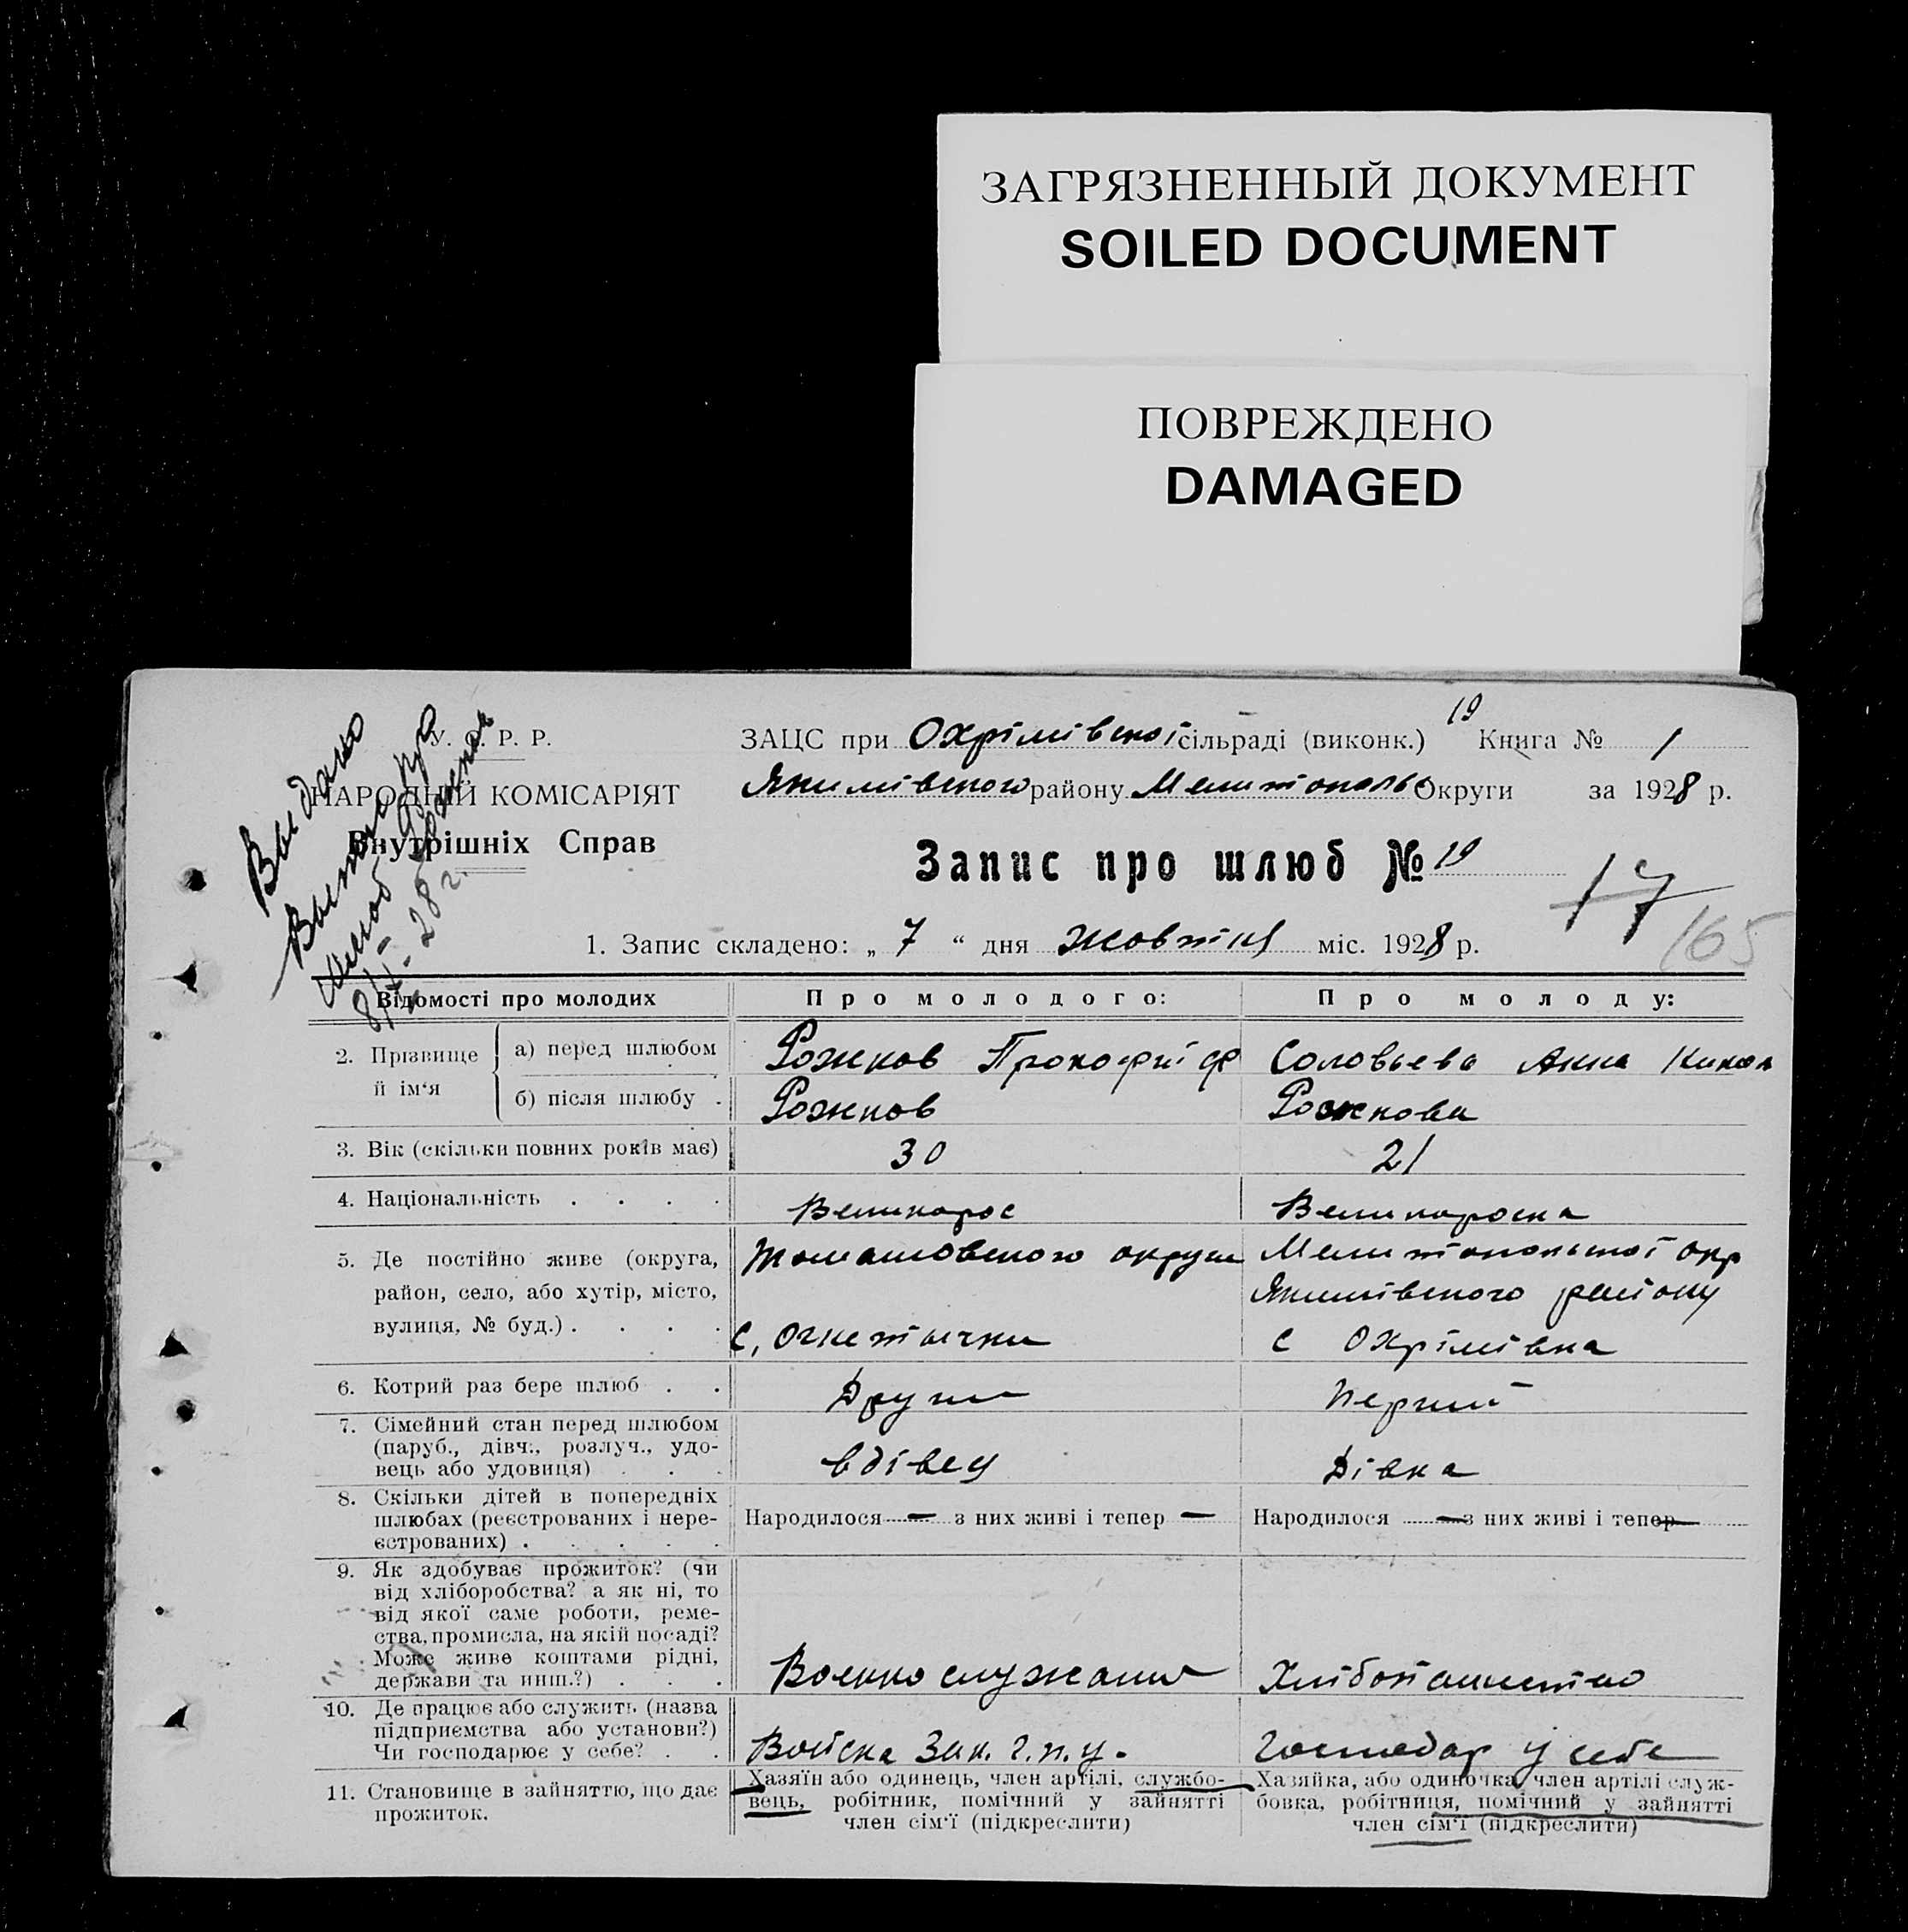 ЗАГРЯЗНЕННЫЙ ДОКУМЕНТ
SOILED DOCUMENT
ПОВРЕЖДЕНО
DAMAGED
У. С. Р. Р.
НАРОДНІЙ КОМІСАРІЯТ
Внутрішніх Справ
Выдано
Шлюб
28 г.
ЗАЦС при Охрімівскої сільраді (виконк.) 19 Книга № 1
Якимівского району Мелитополь Округи за 1928 р.
Запис про шлюб № 19
17
165
1. Запис складено: „ 7 “ дня жовтня міс. 1928 р.
Відомості про молодих
Про молодого:
Про молоду:
2. Прізвище й ім‘я
а) перед шлюбом
Рожков Прокофий Ф
Соловьева Анна Никол
б) після шлюбу .
Рожков
Рожкова
3. Вік (скільки повних років має)
30
21
4. Національність . . . .
Великорос
Великороска
5. Де постійно живе (округа,
район, село, або хутір, місто,
вулиця, № буд.) . . . .
округи
с,
Мелитопольскої окр
Якимівского району
с Охрімівка
6. Котрий раз бере шлюб . .
Други
Перший
7. Сімейний стан перед шлюбом
(паруб., дівч., розлуч., удо-
вець або удовиця) . . .
вдівец
Дівка
8. Скільки дітей в попередніх
шлюбах (реєстрованих і нере-
єстрованих) . . . . .
Народилося — з них живі і тепер —
Народилося — з них живі і тепер —
9. Як здобуває прожиток? (чи
від хліборобства? а як ні, то
від якої саме роботи, реме-
ства, промисла, на якій посаді?
Може живе коштами рідні,
держави та инш.?) . . .
Военно служащи
Хлібопашество
10. Де працює або служить (назва
підприємства або установи?)
Чи господарює у себе? . .
Войска Зак. Г.П.У.
Господар у себе
11. Становище в зайняттю, що дає
прожиток.
Хазяїн або одинець, член артілі, службо-
вець, робітник, помічний у зайнятті
член сім‘ї (підкреслити)
Хазяйка, або одиночка, член артілі служ-
бовка, робітниця, помічний у зайнятті
член сім‘ї (підкреслити)